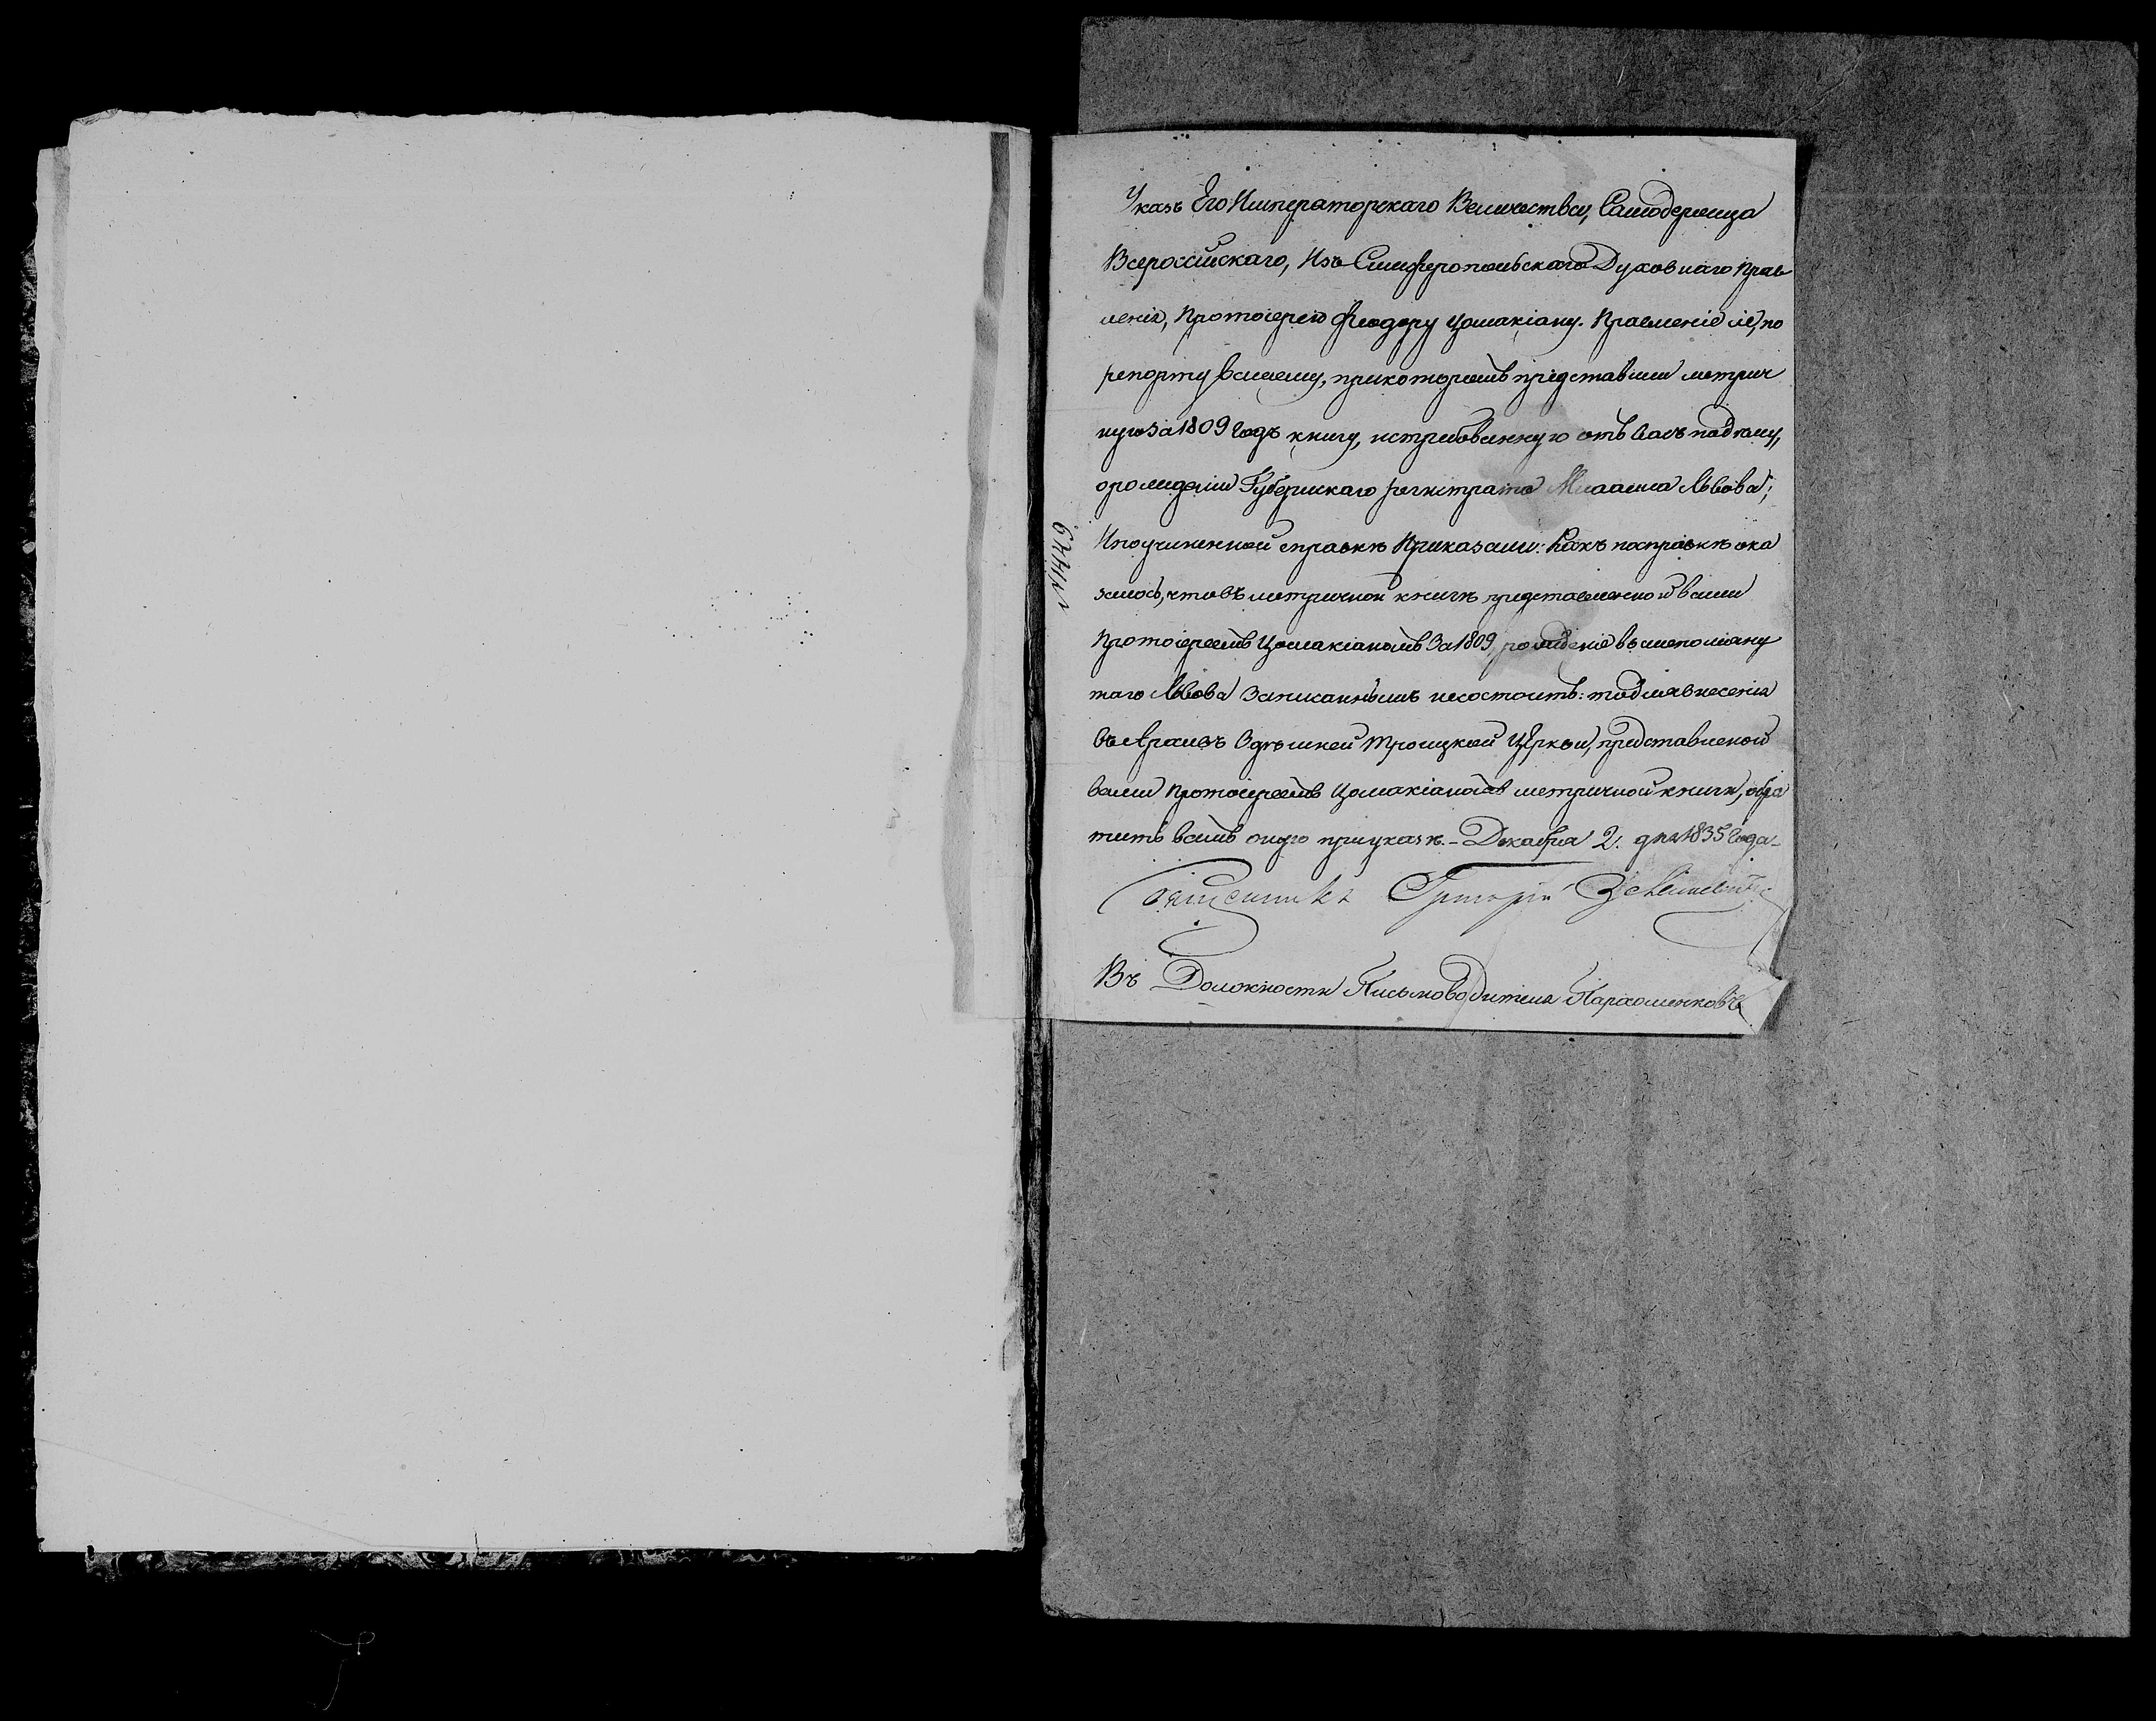 Указъ Его Императорскаго Величества, Самодержца
Всероссійскаго, Изъ Симферопольскаго Духовнаго Прав
ленія, Протоіерею Феодору Цомакіану. Правленіе сіе, по
репорту вашему, прикоторомъ представили метрич
ную за 1809 годъ книгу, истребованную отъ васъ
орождении Губернскаго регистрато Львова;
Ипоучиненной справкѣ Приказали: Какъ посправкѣ ока
залось, что въ метричной книгѣ представленной вами
Протоіереемъ Цомакіаномъ За 1809, рождение вышепомяну
таго Львова Записаннымъ несостоитъ: то для внесенія
въ Архивъ Здѣшней Троицкой Церкви, представленой
вами Протоіереемъ Цомакіаномъ метричной книги, обра
тить вамъ оную приуказѣ. - Декабря 2. дня 1835 года -
Священникъ Григорій
Въ Должности Письмоводителя Пархоменковъ
№1449